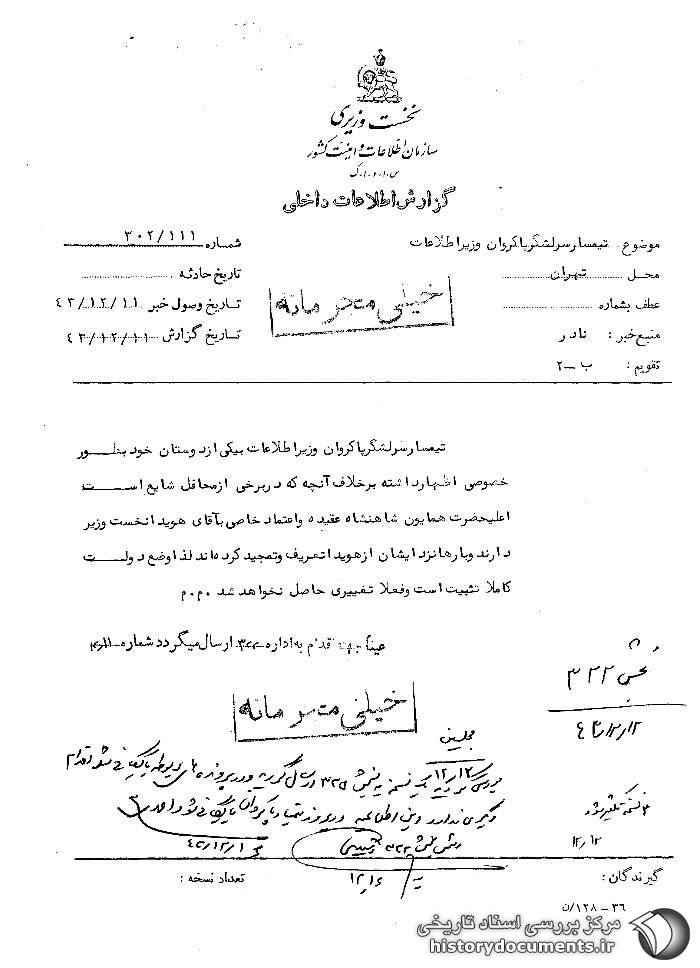 نخست وزیری
سازمان اطلاعات و امنیت کشور
س.ا.و.ا.ک
گزارش اطلاعات داخلی
موضوع : تیمسار سرلشگر پاکروان وزیر اطلاعات
شماره ۳۰۲/۱۱۱
محل تهران
تاریخ حادثه
عطف بشماره
تاریخ وصول خبر ۴۳/۱۲/۱۱
منبع خبر : نادر
تاریخ گزارش ۴۳/۱۲/۱۱
تقویم : ب-۲
خیلی محرمانه
تیمسار سرلشگر پاکروان وزیر اطلاعات بیکی از دوستان خود بطور
خصوصی اظهار داشته برخلاف آنچه که در برخی از محافل شایع است
اعلیحضرت همایون شاهنشاه عقیده و اعتماد خاصی بآقای هویدا نخست وزیر
دارند و بارها نزد ایشان از هویدا تعریف و تمجید کرده‌اند لذا وضع دولت
کاملا تثبیت است و فعلا تغییری حاصل نخواهد شد م.م.
عیناً جهت اقدام به اداره ۳۲۲ ارسال میگردد شماره
بخش ۳۲۲
۴۳/۱۲/۱۲
خیلی محرمانه
مجلسین
۱۲/۱۲
نسخه تکثیر شود
۱۲/۱۲
رئیس بخش ۳۲۲
۱۲/۱۶
گیرندگان :
تعداد نسخه :
۳۶-۱۲۸/ن
مرکز بررسی اسناد تاریخی
historydocuments.ir